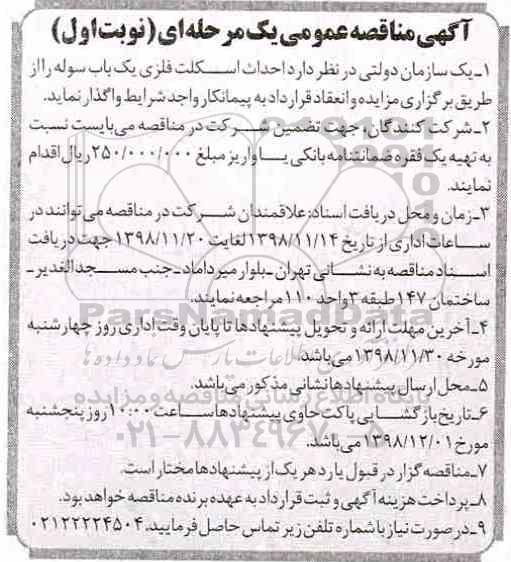 آگهی مناقصه عمومی یک مرحله‌ای (نوبت اول)
۱ـ یک سازمان دولتی در نظر دارد احداث اسکلت فلزی یک باب سوله را از
طریق برگزاری مزایده و انعقاد قرارداد به پیمانکار واجد شرایط واگذار نماید.
۲ـ شرکت کنندگان، جهت تضمین شرکت در مناقصه می‌بایست نسبت
به تهیه یک فقره ضمانتنامه بانکی یا واریز مبلغ ۲۵۰/۰۰۰/۰۰۰ ریال اقدام
نمایند.
۳ـ زمان و محل دریافت اسناد: علاقمندان شرکت در مناقصه می‌توانند در
ساعات اداری از تاریخ ۱۳۹۸/۱۱/۱۴ لغایت ۱۳۹۸/۱۱/۲۰ جهت دریافت
اسناد مناقصه به نشانی تهران ـ بلوار میرداماد ـ جنب مسجد الغدیر ـ
ساختمان ۱۴۷ طبقه ۳ واحد ۱۱۰ مراجعه نمایند.
ParsNamadData
۴ـ آخرین مهلت ارائه و تحویل پیشنهادها تا پایان وقت اداری روز چهارشنبه
مورخه ۱۳۹۸/۱۱/۳۰ می‌باشد.
۵ـ محل ارسال پیشنهادها نشانی مذکور می‌باشد.
پایگاه اطلاع رسانی مناقصه و مزایده
۶ـ تاریخ بازگشایی پاکت حاوی پیشنهادها ساعت ۱۰:۰۰ روز پنجشنبه
مورخ ۱۳۹۸/۱۲/۰۱ می‌باشد.
۰۲۱-۸۸۳۴۹۶۷۰-۵
۷ـ مناقصه گزار در قبول یا رد هر یک از پیشنهادها مختار است.
۸ـ پرداخت هزینه آگهی و ثبت قرارداد به عهده برنده مناقصه خواهد بود.
۹ـ در صورت نیاز با شماره تلفن زیر تماس حاصل فرمایید. ۰۲۱۲۲۲۲۴۵۰۴